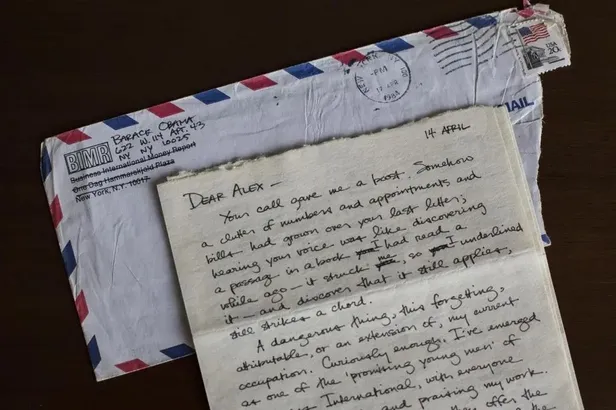 BARACK OBAMA
622 W. 114 APT. 43
NY NY 10025
BIMR
Business International Money Report
One Dag Hammarskjold Plaza
New York, N.Y. 10017
NEW YORK
PM
17 APR
1984
USA
20c
MAIL
14 APRIL
DEAR ALEX —
Your call gave me a boost. Somehow
a clutter of numbers and appointments and
bills had grown over your last letter;
hearing your voice was like discovering
a passage in a book I had read a
while ago — it struck me, so I underlined
it — and discover that it still applies,
still strikes a chord.
A dangerous thing, this forgetting,
attributable, or an extension of, my current
occupation. Curiously enough, I've emerged
as one of the "promising young men" of
International, with everyone
and praising my work.
offer the